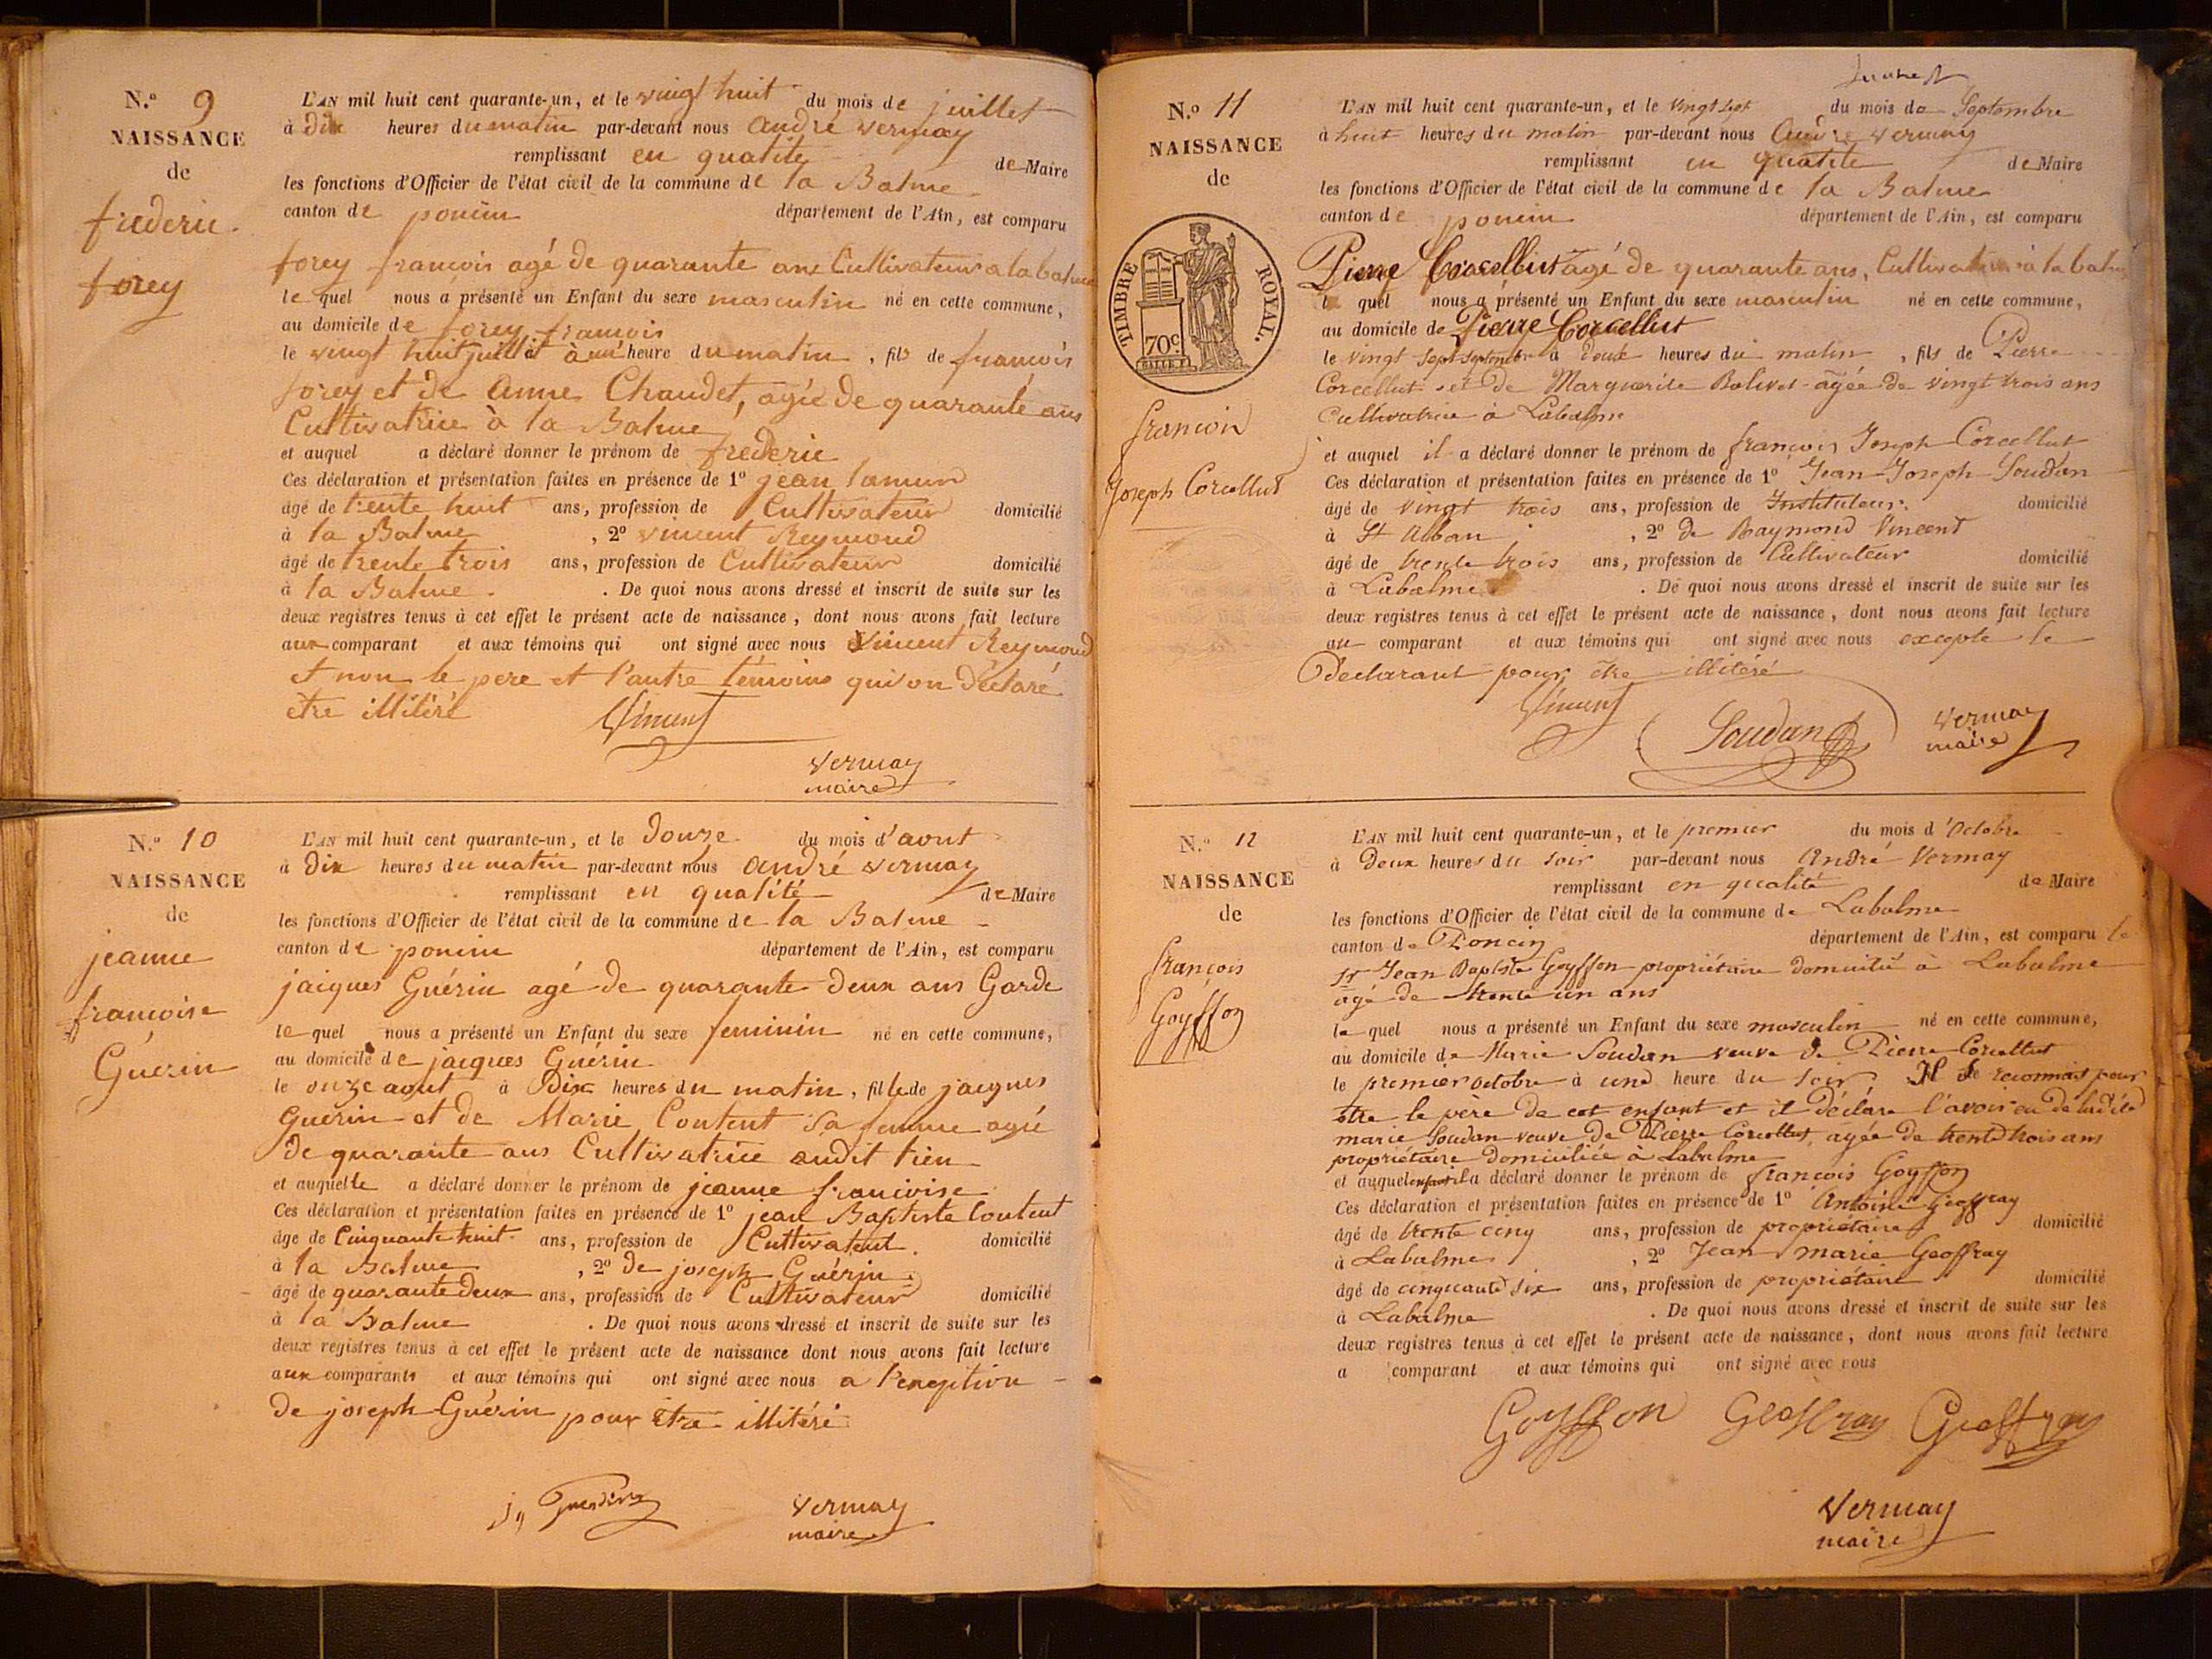 N.º 9
NAISSANCE
de
frederic
forey
L'AN mil huit cent quarante-un, et le vingt huit du mois de juillet
à dix heures du matin par-devant nous andré vermay
remplissant en qualité de Maire
les fonctions d'Officier de l'état civil de la commune de la Balme
canton de poncin département de l'Ain, est comparu
forey francois agé de quarante ans Cultivateur a la balme
le quel nous a présenté un Enfant du sexe masculin né en cette commune,
au domicile de forey francois
le vingt huit juillet à un heure du matin, fils de francois
forey et de anne Chaudet, agée de quarante ans
Cultivatrice à la Balme
et auquel a déclaré donner le prénom de frederic
Ces déclaration et présentation faites en présence de 1º jean
âgé de trente huit ans, profession de Cultivateur domicilié
à la Balme, 2º vincent Reymond
âgé de trente trois ans, profession de Cultivateur domicilié
à la Balme. De quoi nous avons dressé et inscrit de suite sur les
deux registres tenus à cet effet le présent acte de naissance, dont nous avons fait lecture
aux comparant et aux témoins qui ont signé avec nous Vincent Reymond
et non le pere et l'autre témoins qui on déclaré
etre illitéré
Vincent
vermay
maire
N.º 10
NAISSANCE
de
jeanne
francoise
Guérin
L'AN mil huit cent quarante-un, et le douze du mois d'aout
à dix heures du matin par-devant nous andré vermay
remplissant en qualité de Maire
les fonctions d'Officier de l'état civil de la commune de la Balme
canton de poncin département de l'Ain, est comparu
jaiques Guérin agé de quarante deux ans Garde
le quel nous a présenté un Enfant du sexe feminin né en cette commune,
au domicile de jacques Guérin
le onze aout à dix heures du matin, fille de jacques
Guerin et de Marie Content sa femme agée
de quarante ans Cultivatrice audit lieu
et auquelle a déclaré donner le prénom de jeanne francoise
Ces déclaration et présentation faites en présence de 1º jean Baptiste Content
âge de Cinquante huit ans, profession de Cultivateur domicilié
à la Balme, 2º de joseph Guérin
âgé de quarante deux ans, profession de Cultivateur domicilié
à la Balme. De quoi nous avons dressé et inscrit de suite sur les
deux registres tenus à cet effet le présent acte de naissance dont nous avons fait lecture
aux comparants et aux témoins qui ont signé avec nous a l'exeption
de joseph Guérin pour etre illitéré
vermay
maire
N.º 11
NAISSANCE
de
TIMBRE ROYAL.
70c
francois
Joseph Corcellut
L'AN mil huit cent quarante-un, et le vingt sept du mois de Septembre
à huit heures du matin par-devant nous André vermay
remplissant en qualité de Maire
les fonctions d'Officier de l'état civil de la commune de la Balme
canton de poncin département de l'Ain, est comparu
Pierre Corcellut agé de quarante ans, Cultivateur à la balme
le quel nous a présenté un Enfant du sexe masculin né en cette commune,
au domicile de Pierre Corcellut
le vingt sept septembre à deux heures du matin, fils de Pierre
Corcellut et de Marguerite Bolivet agée de vingt trois ans
Cultivatrice à Labalme
et auquel il a déclaré donner le prénom de françois Joseph Corcellut
Ces déclaration et présentation faites en présence de 1º Jean Joseph Soudan
âgé de vingt trois ans, profession de Instituteur domicilié
à St Alban, 2º de Raymond Vincent
âgé de trente trois ans, profession de Cultivateur domicilié
à Labalme. De quoi nous avons dressé et inscrit de suite sur les
deux registres tenus à cet effet le présent acte de naissance, dont nous avons fait lecture
au comparant et aux témoins qui ont signé avec nous excepte le
Declarant pour être illitéré
Vincent
Soudan
vermay
maire
N.º 12
NAISSANCE
de
françois
Goyffon
L'AN mil huit cent quarante-un, et le premier du mois d'Octobre
à deux heures du soir par-devant nous André Vermay
remplissant en qualité de Maire
les fonctions d'Officier de l'état civil de la commune de Labalme
canton de Poncin département de l'Ain, est comparu le
sr Jean Baptiste Goyffon propriétaire domicilié à Labalme
agé de trente un ans
le quel nous a présenté un Enfant du sexe masculin né en cette commune,
au domicile de Marie Soudan veuve de Pierre Corcellut
le premier octobre à une heure du soir Il se reconnait pour
être le père de cet enfant et il déclare l'avoir eu de ladite
marie Soudan veuve de Pierre Corcellut, agée de trente trois ans
propriétaire domiciliée à Labalme
et auquel enfant il a déclaré donner le prénom de françois Goyffon
Ces déclaration et présentation faites en présence de 1º Antoine Geoffray
âgé de trente cinq ans, profession de propriétaire domicilié
à Labalme, 2º Jean marie Geoffray
âgé de cinquante six ans, profession de propriétaire domicilié
à Labalme. De quoi nous avons dressé et inscrit de suite sur les
deux registres tenus à cet effet le présent acte de naissance, dont nous avons fait lecture
a comparant et aux témoins qui ont signé avec nous
Goyffon Geoffray Geoffray
Vermay
maire